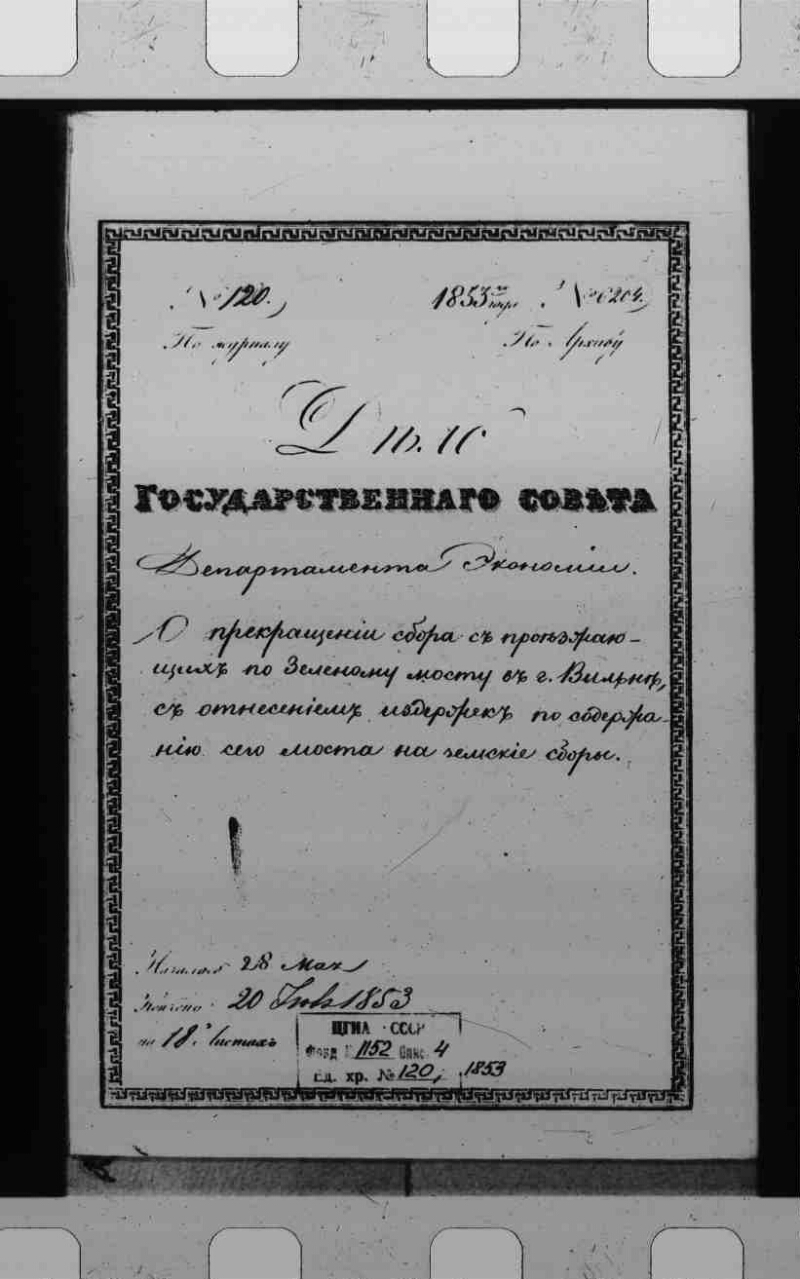 № 120. 1853 года № 6204.
По журналу По Архиву
Дѣло
ГОСУДАРСТВЕННАГО СОВѢТА
Департамента Экономіи.
О прекращеніи сбора съ проѣзжаю-
щихъ по Зеленому мосту въ г. Вильнѣ,
съ отнесеніемъ издержекъ по содержа-
нію сего моста на земскіе сборы.
Началось 28 Мая
Кончено 20 1853
на 18 Листахъ
ЦГИА СССР
Фонд № 1152 Опис 4
ед. хр. № 120, 1853